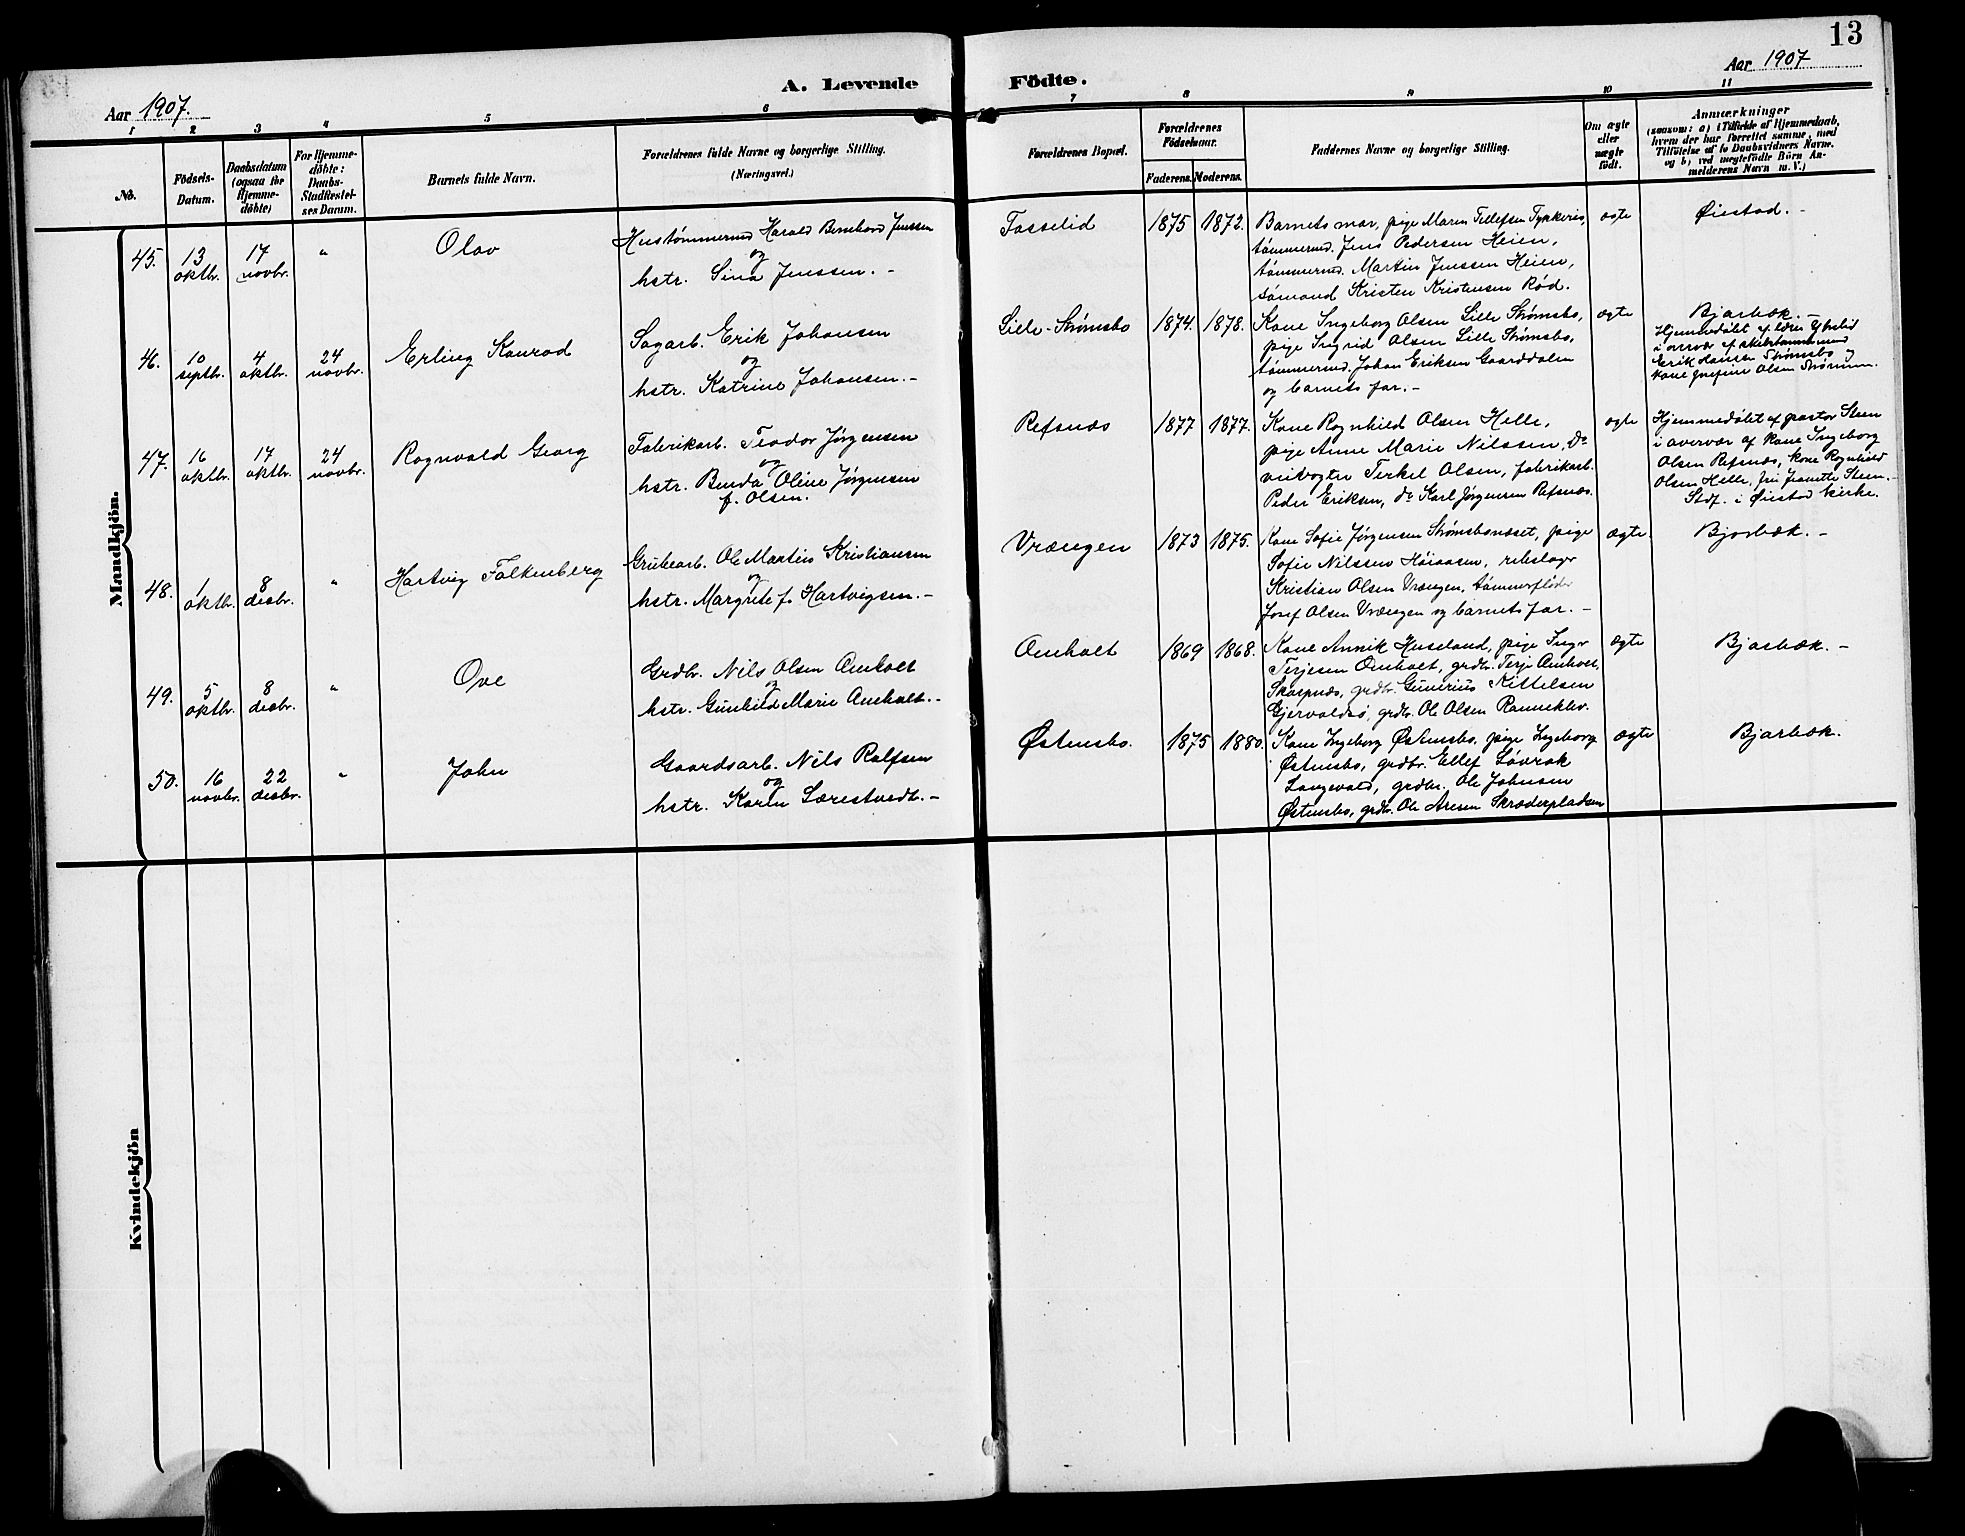 13
A. Levende Födte.
Aar 1907.
Aar 1907
1 2 3 4 5 6 7 8 9 10 11
No.
Födsels-
Datum.
Daabsdatum
(ogsaa for
Hjemme-
döbte)
For Hjemme-
döbte:
Daabs-
Stadfæstel-
ses Datum.
Barnets fulde Navn.
Forældrenes fulde Navne og borgerlige Stilling.
(Næringsvei.)
Forældrenes Bopæl.
Forældrenes
Födselsaar.
Faderens. Moderens.
Faddernes Navne og borgerlige Stilling.
Om ægte
eller
uægte
födt.
Anmærkninger
(saasom: a) i Tilfælde af Hjemmedaab,
hvem der har forrettet samme, med
Tilföielse af to Daabsvidners Navne,
og b) ved uegtefödte Börn An-
melderens Navn m. V.)
Mandkjön.
45. 13 oktbr. 17 novbr. " Olav
Hustømmermd Harald Bernhard Jenssen
og
hstr. Sina Jenssen. -
Fosselid 1875 1872.
Barnets mor, pige Maren Tellefsen Tykkeris,
tømmermd. Jens Pedersen Heien,
tømmermd. Martin Jenssen Heien,
sømand Kristen Kristensen Rød.
ægte Øiestad. -
46. 10 septbr. 4 oktbr. 24 novbr. Erling Konrad
Sagarb. Erik Johansen
og
hstr. Katrine Johansen. -
Lille-Strømsbo 1874. 1878.
Kone Ingeborg Olsen Lille Strømsbo,
pige Ingrid Olsen Lille Strømsbo,
tømmermd. Johan Eriksen Gaarddalen
og barnets far. -
ægte Bjorbæk. -
Hjemmedøbt af
i overvær af
Erik Hansen Strømsbo og
kone Josefine Olsen
47. 16 oktbr. 17 oktbr. 24 novbr. Ragnvald Georg
Fabrikarb. Teodor Jørgensen
og
hstr. Benda Oline Jørgensen
f. Olsen.
Refsnæs 1877 1877.
Kone Ragnhild Olsen Helle,
pige Anne Marie Nilssen, do
veivogter Terkel Olsen, fabrikarb.
Peder Eriksen, do Karl Jørgensen Refsnæs.
ægte
Hjemmedøbt af pastor Steen
i overvær af kone Ingeborg
Olsen Refsnæs, kone Ragnhild
Olsen Helle, fru Jeanette Steen. -
Stdf. i Øiestad kirke.
48. 1 oktbr. 8 desbr. " Hartvig Falkenberg
Grubearb. Ole Martin Kristiansen
og
hstr. Margrete f. Hartvigsen. -
Vrængen 1873 1875.
Kone Sofie Jørgensen Strømsbonæset, pige
Sofie Nilssen Høiaasen, rebslager
Kristian Olsen Vrængen, tømmerfløder
Josef Olsen Vrængen og barnets far. -
ægte Bjorbæk. -
49. 5 oktbr. 8 desbr. " Ove
Grdbr. Nils Olsen Omholt
og
hstr. Gunhild Marie Omholt. -
Omholt 1869 1868.
Kone Annik Huseland, pige Inger
Terjesen Omholt, grdbr. Terje Omholt,
Skarpnæs, grdbr. Gunerius Kittelsen
Gjervoldsø, grdbr. Ole Olsen Ranneklev.
ægte Bjorbæk. -
50. 16 novbr. 22 desbr. " John
Gaardsarb. Nils Rolfsen
og
hstr. Karen Lærestvedt. -
Østensbo. 1875 1880.
Kone Ingeborg Østensbo, pige Ingeborg
Østensbo, grdbr. Ellef Løvrak
Langevold, grdbr. Ole Johnsen
Østensbo, grdbr. Ole Aresen Skræderpladsen
ægte Bjorbæk.
Kvindekjön